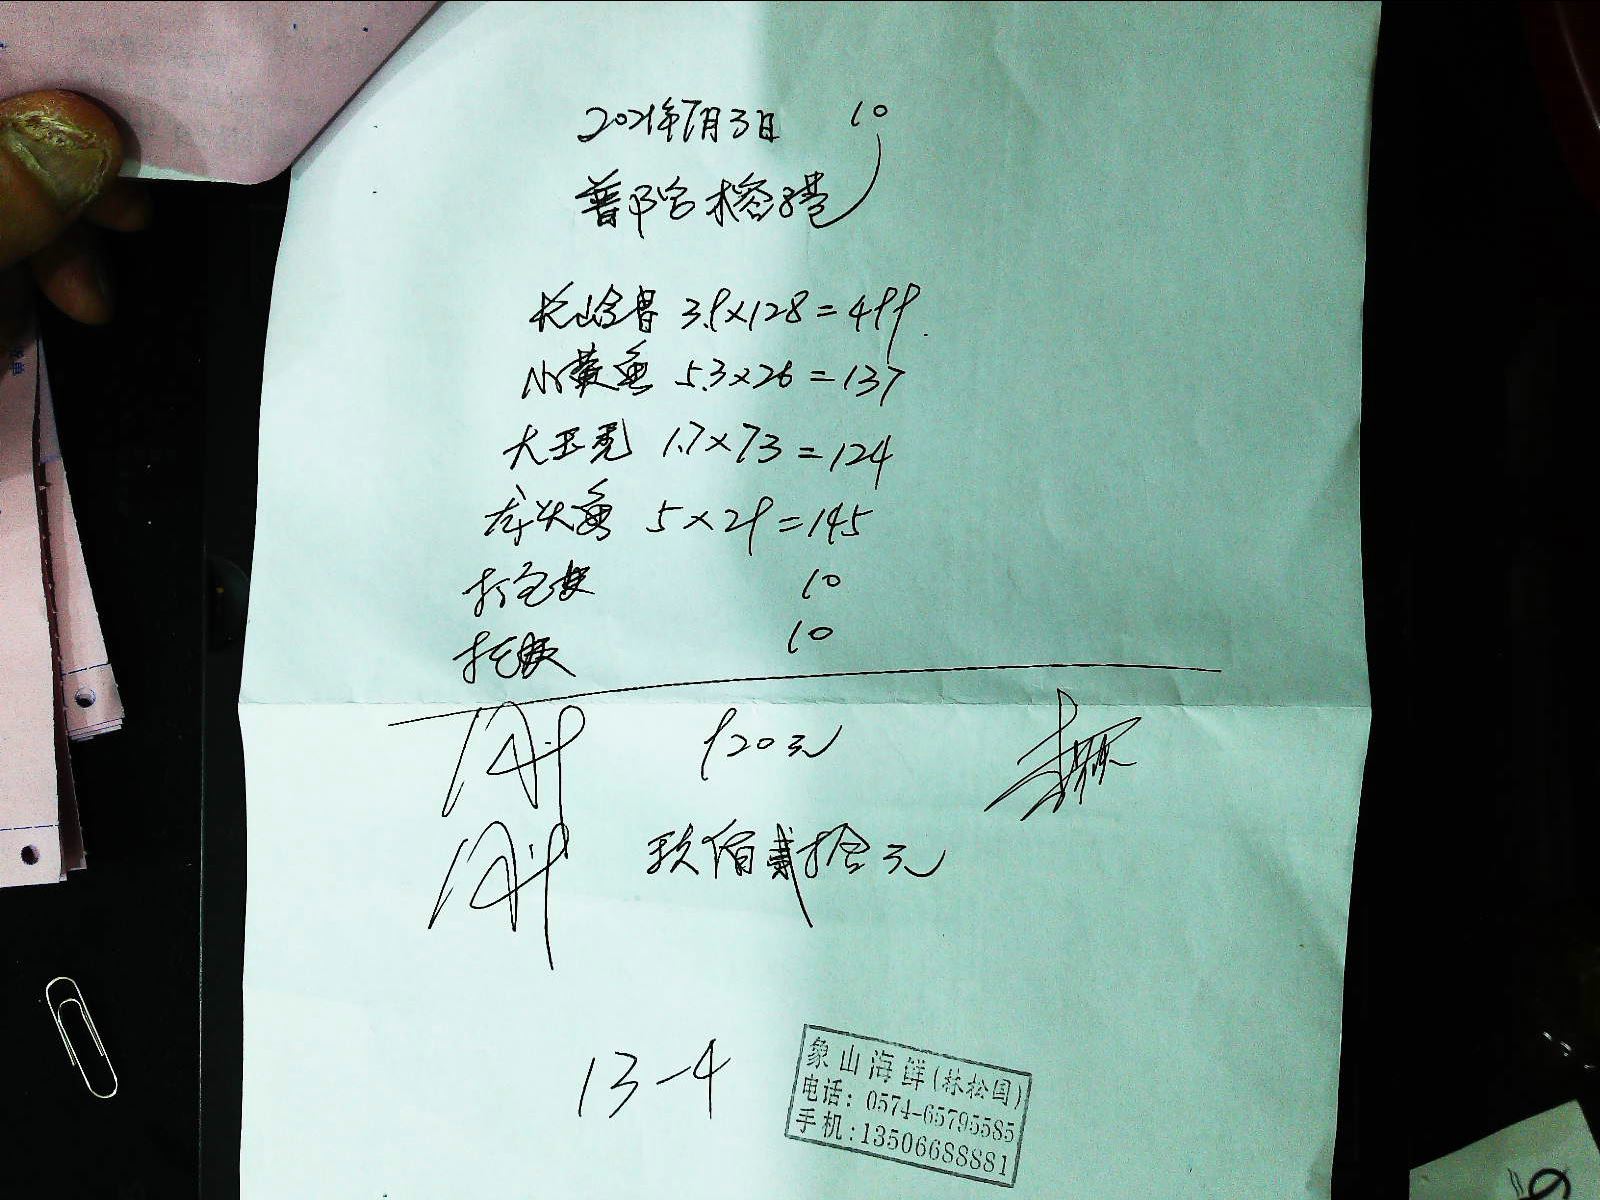 2021年7月3日 10
普陀 榕港
3.9×128=499
小黄鱼 5.3×26=137
大玉秃 1.7×73=124
龙头鱼 5×29=145
打包费 10
托运费 10
920元
玖佰贰拾元
13-4
象山海鲜(林松国)
电话: 0574-65795585
手机:13506688881